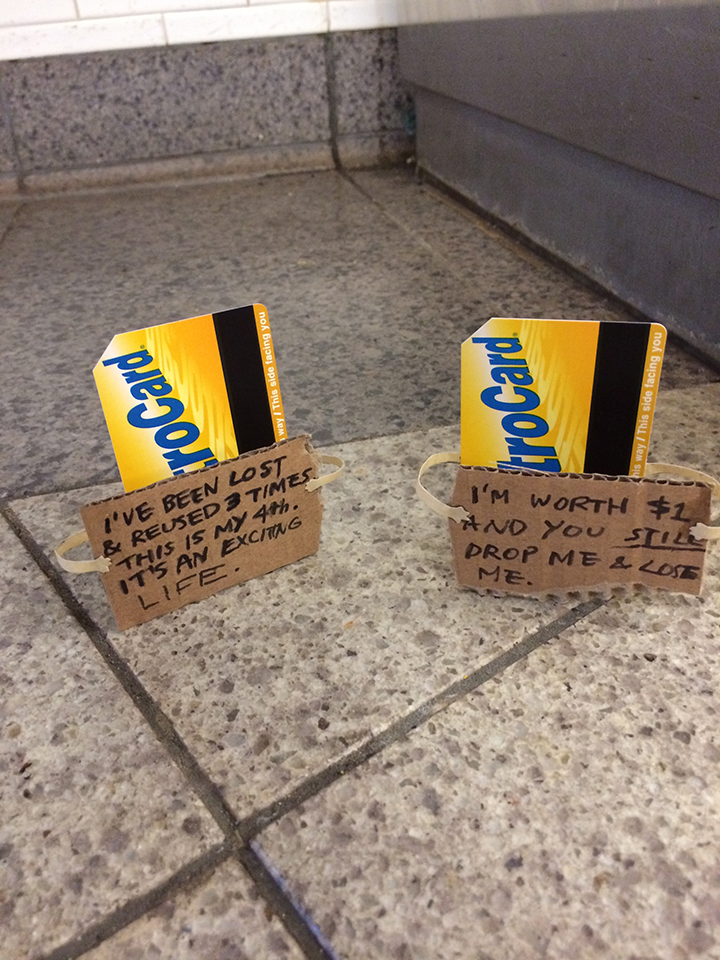 troCard.
way / This side facing you
I'VE BEEN LOST
& REUSED 3 TIMES
THIS IS MY 4th.
IT'S AN EXCITING
LIFE.
troCard.
his way / This side facing you
I'M WORTH $1
AND YOU STILL
DROP ME & LOSE
ME.